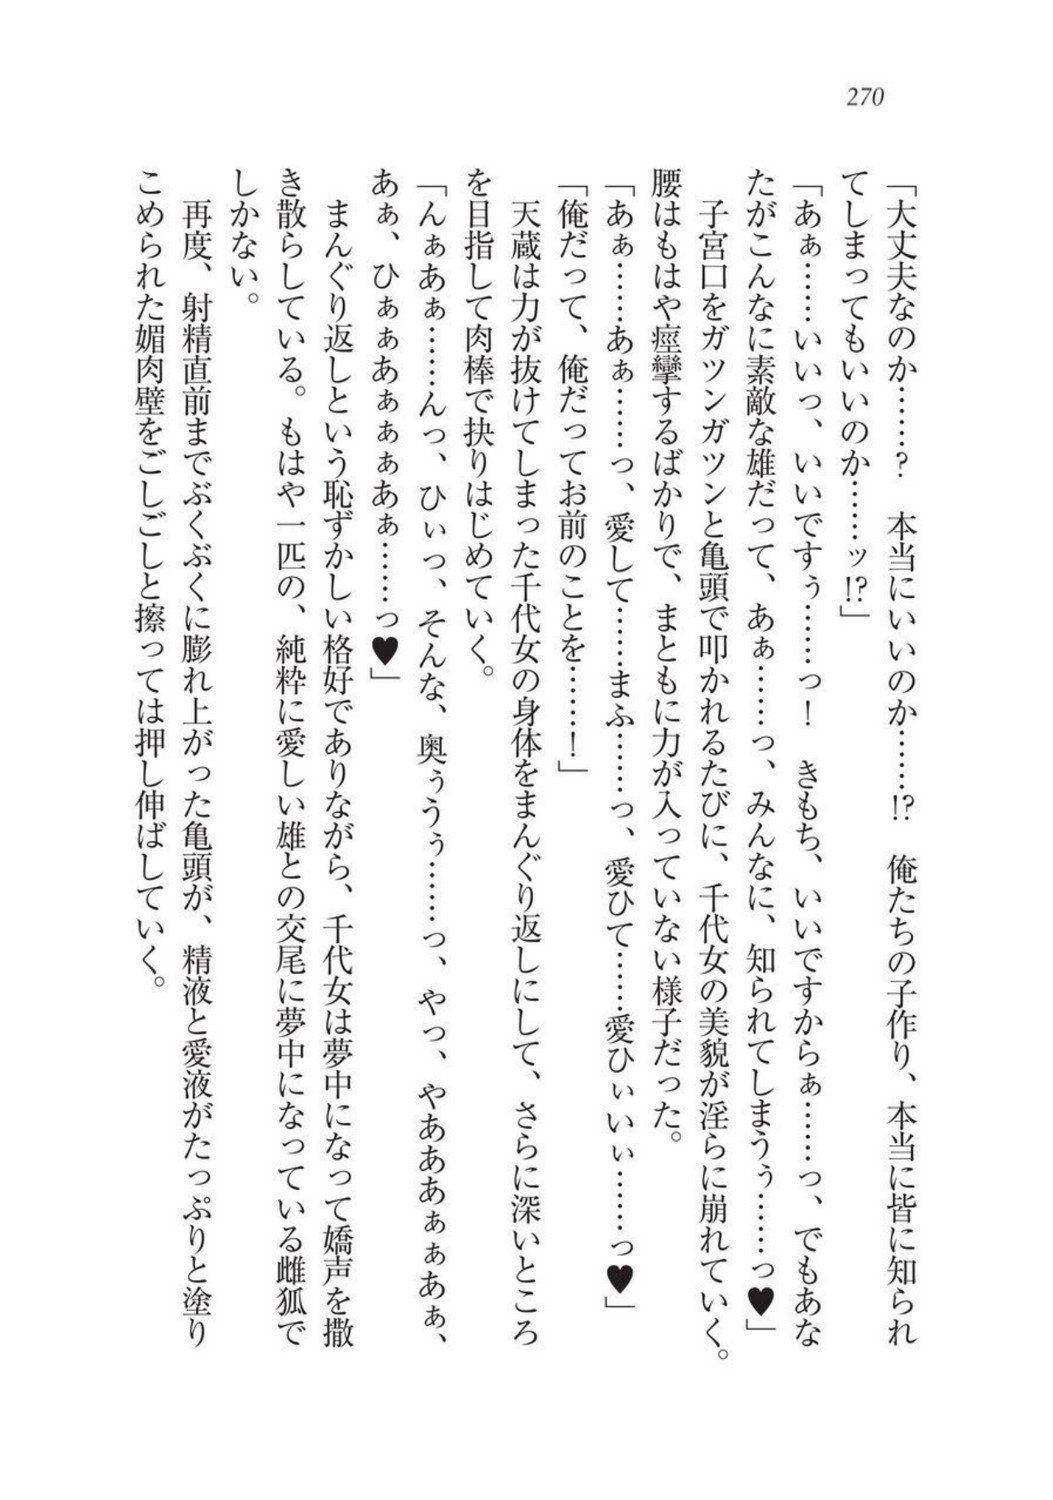 270
「大丈夫なのか……？　本当にいいのか……!?　俺たちの子作り、本当に皆に知られ
てしまってもいいのか……ッ!?」
「あぁ……いいっ、いいですぅ……っ！　きもち、いいですからぁ……っ、でもあな
たがこんなに素敵な雄だって、あぁ……っ、みんなに、知られてしまうぅ……っ♥」
　子宮口をガツンガツンと亀頭で叩かれるたびに、千代女の美貌が淫らに崩れていく。
腰はもはや痙攣するばかりで、まともに力が入っていない様子だった。
「あぁ……あぁ……っ、愛して……まふ……っ、愛ひて……愛ひぃいぃ……っ♥」
「俺だって、俺だってお前のことを……！」
　天蔵は力が抜けてしまった千代女の身体をまんぐり返しにして、さらに深いところ
を目指して肉棒で抉りはじめていく。
「んぁあぁ……んっ、ひぃっ、そんな、奥ぅうぅ……っ、やっ、やあああぁぁあぁ、
あぁ、ひぁぁあぁぁぁあぁ……っ♥」
　まんぐり返しという恥ずかしい格好でありながら、千代女は夢中になって嬌声を撒
き散らしている。もはや一匹の、純粋に愛しい雄との交尾に夢中になっている雌狐で
しかない。
　再度、射精直前までぶくぶくに膨れ上がった亀頭が、精液と愛液がたっぷりと塗り
こめられた媚肉壁をごしごしと擦っては押し伸ばしていく。